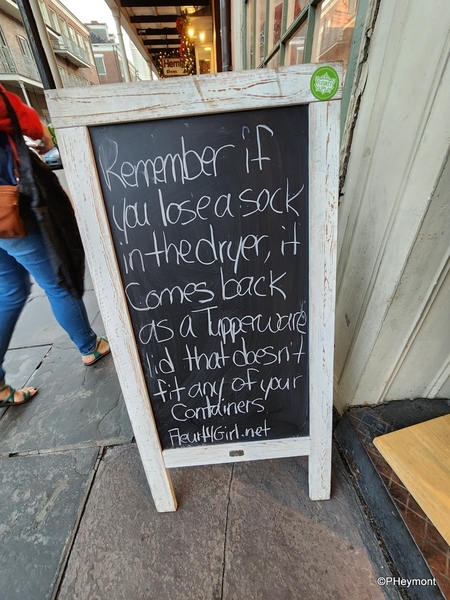 Hemp
Remember if
you lose a sock
in the dryer, it
Comes back
as a Tupperware
lid that doesn't
fit any of your
Containers
©PHeymont